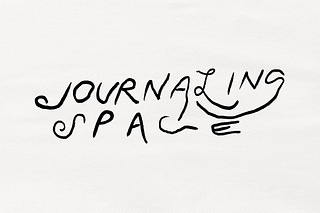 JOURNALING
SPACE